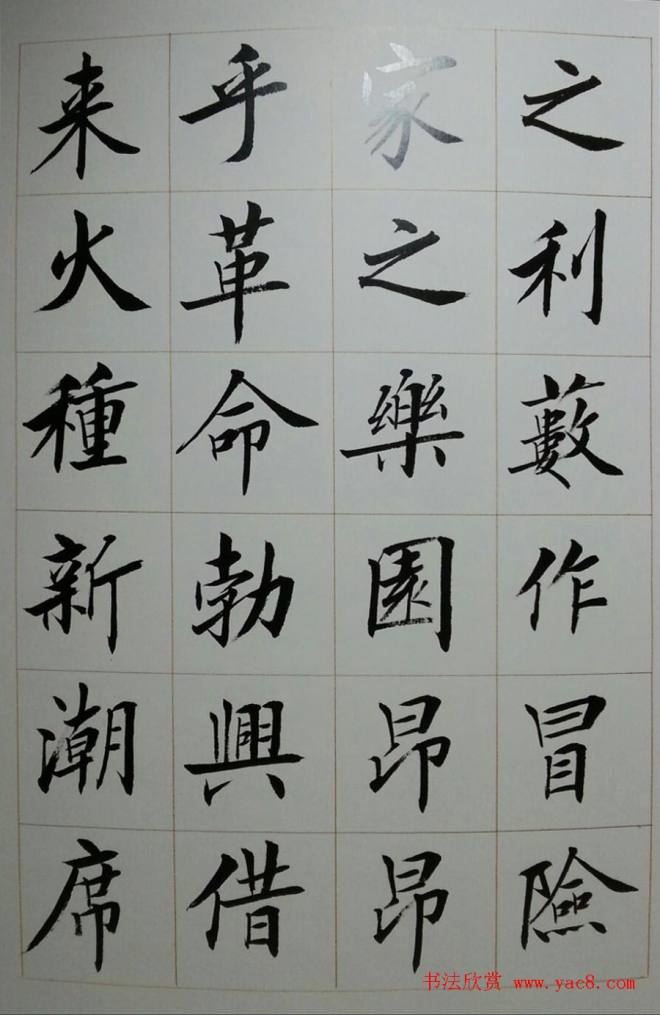 之利藪作冒險
家之樂園昂昂
乎革命勃興借
来火種新潮席
书法欣赏 www.yac8.com